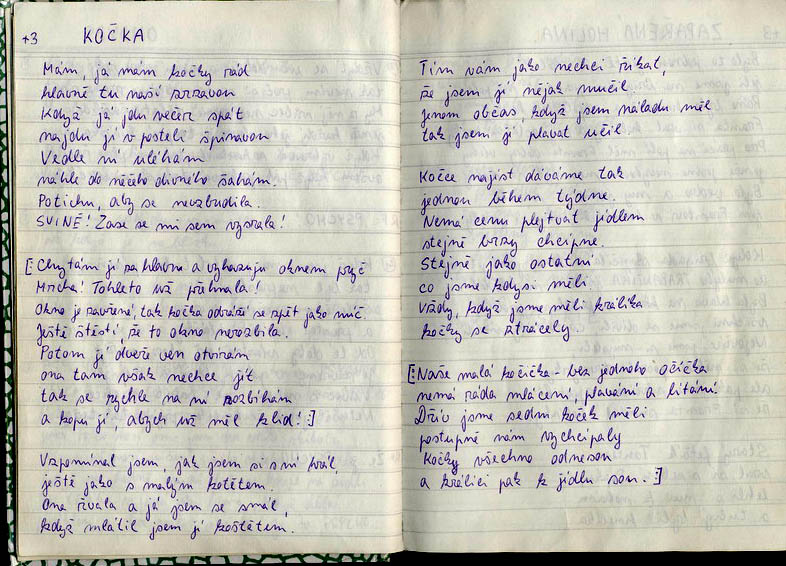 +3 KOČKA
Mám, já mám kočky rád
hlavně tu naši zrzavou
Když já jdu večer spát
najdu ji v posteli špinavou
Vedle ní uléhám
náhle do něčeho divného šahám.
Potichu, aby se nevzbudila.
SVINĚ! Zase se mi sem vysrala!
[: Chytám ji za hlavu a vyhazuju oknem pryč
Mrcha! Tohleto už přehnala!
Okno je zavřené, tak kočka odráží se zpět jako míč.
Ještě štěstí, že to okno nerozbila.
Potom jí dveře ven otvírám
ona tam však nechce jít
tak se rychle na ní rozbíhám
a kopu jí, abych už měl klid! :]
Vzpomínal jsem, jak jsem si s ní hrál,
ještě jako s malým kotětem.
Ona řvala a já jsem se smál,
když mlátil jsem jí koštětem.
Tím vám jako nechci říkat,
že jsem ji nějak mučil.
Jenom občas, když jsem náladu měl
tak jsem ji plavat učil.
Kočce najíst dáváme tak
jednou během týdne.
Nemá cenu plejtvat jídlem
stejně brzy chcípne.
Stejně jako ostatní
co jsme kdysi měli
Vždy, když jsme měli králíka
kočky se ztrácely.
[: Naše malá kočička - bez jednoho očička
nemá ráda mlácení, plavání a lítání.
Dřív jsme sedm koček měli
postupně nám vychcípaly
Kočky všechno odnesou
a králíci pak k jídlu sou. :]